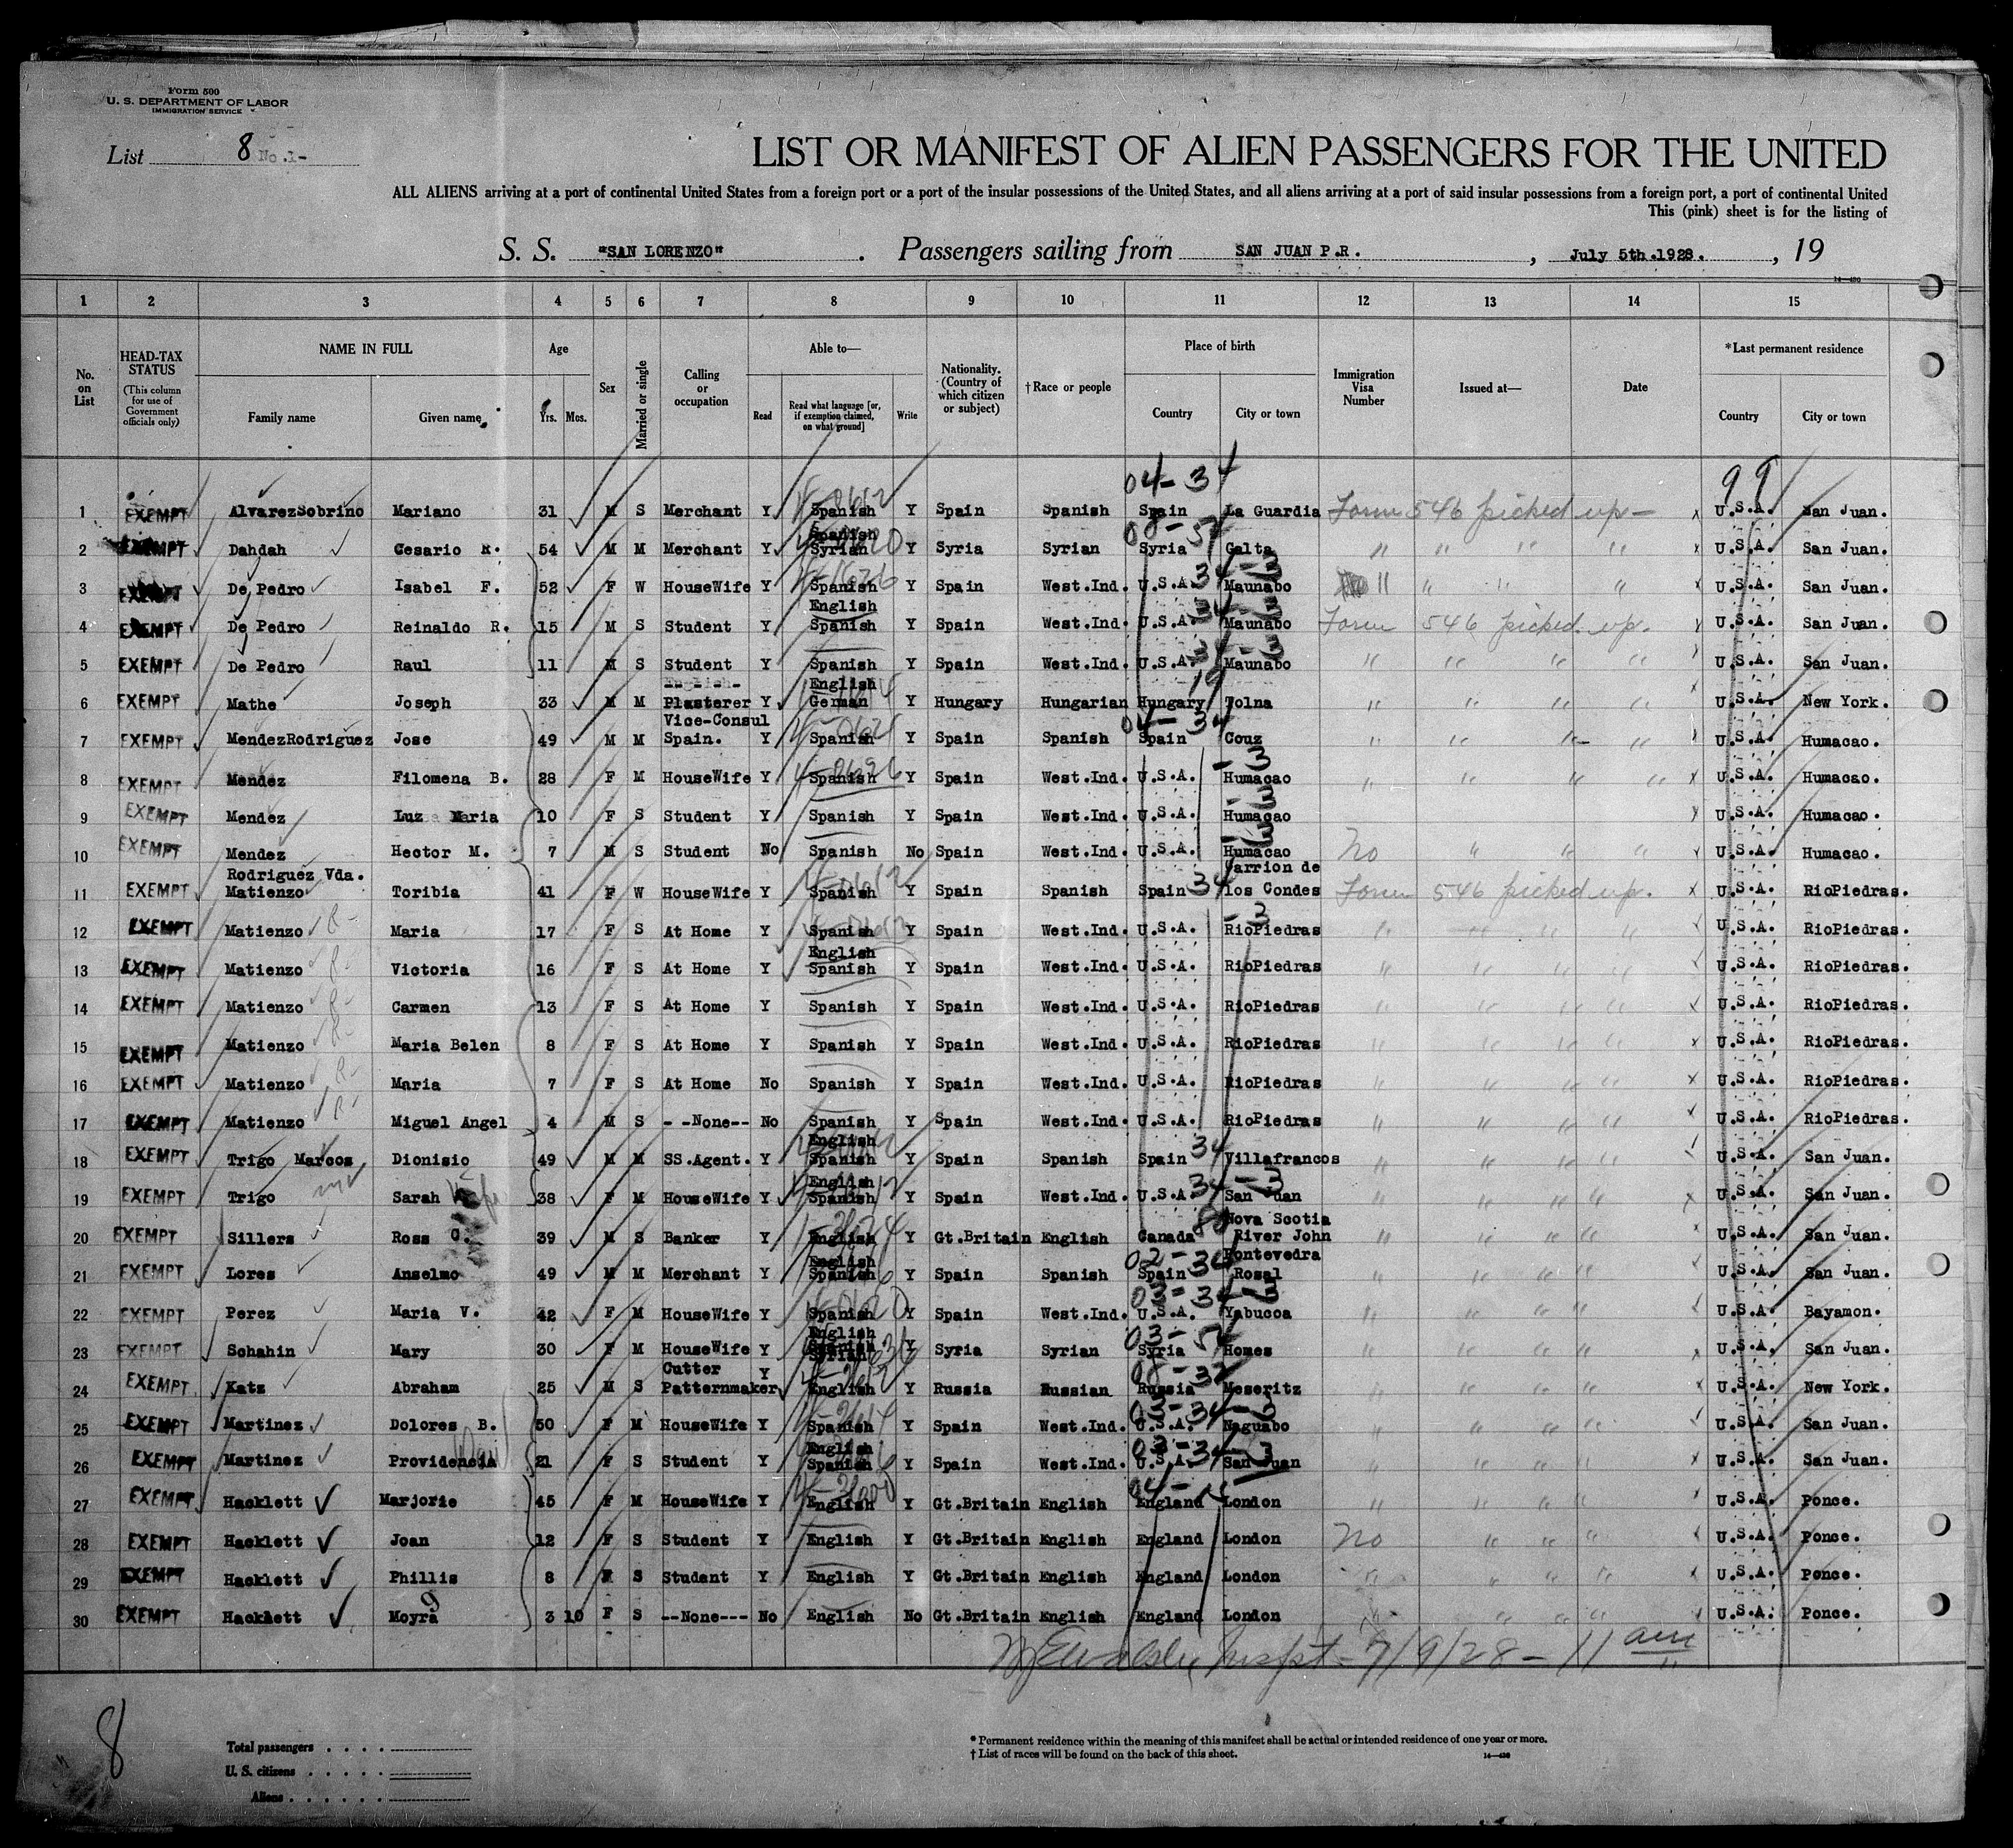 Form 500
U. S. DEPARTMENT OF LABOR
IMMIGRATION SERVICE
List 8 No.1-
LIST OR MANIFEST OF ALIEN PASSENGERS FOR THE UNITED
ALL ALIENS arriving at a port of continental United States from a foreign port or a port of the insular possessions of the United States, and all aliens arriving at a port of said insular possessions from a foreign port, a port of continental United
This (pink) sheet is for the listing of
S. S. "SAN LORENZO" . Passengers sailing from SAN JUAN P.R. , July 5th.1928. , 19
14—430
1 2 3 4 5 6 7 8 9 10 11 12 13 14 15
No. on List
HEAD-TAX STATUS (This column for use of Government officials only)
NAME IN FULL Family name Given name
Age Yrs. Mos.
Sex
Married or single
Calling or occupation
Able to— Read Read what language [or, if exemption claimed, on what ground] Write
Nationality. (Country of which citizen or subject)
† Race or people
Place of birth Country City or town
Immigration Visa Number
Issued at—
Date
*Last permanent residence Country City or town
04-34 99
1 EXEMPT AlvarezSobrino Mariano 31 M S Merchant Y Spanish Y Spain Spanish Spain La Guardia Form 546 picked up - x U.S.A. San Juan.
2 EXEMPT Dahdah Cesario R. 54 M M Merchant Y Spanish Syrian Y Syria Syrian Syria Galta " " " " x U.S.A. San Juan.
3 EXEMPT De Pedro Isabel F. 52 F W HouseWife Y Spanish Y Spain West.Ind. U.S.A. 34-3 Maunabo " " " " x U.S.A. San Juan.
4 EXEMPT De Pedro Reinaldo R. 15 M S Student Y English Spanish Y Spain West.Ind. U.S.A. 34-3 Maunabo Form 546 picked up. x U.S.A. San Juan.
5 EXEMPT De Pedro Raul 11 M S Student Y Spanish Y Spain West.Ind. U.S.A. 34-3 Maunabo " " " " U.S.A. San Juan.
6 EXEMPT Mathe Joseph 33 M M Plasterer Y English German Y Hungary Hungarian Hungary 19 Tolna " " " " x U.S.A. New York.
7 EXEMPT MendezRodriguez Jose 49 M M Vice-Consul Spain. Y Spanish Y Spain Spanish 04-34 Spain Couz " " " " x U.S.A. Humacao.
8 EXEMPT Mendez Filomena B. 28 F M HouseWife Y Spanish Y Spain West.Ind. U.S.A. -3 Humacao " " " " x U.S.A. Humacao.
9 EXEMPT Mendez Luz Maria 10 F S Student Y Spanish Y Spain West.Ind. U.S.A. -3 Humacao U.S.A. Humacao.
10 EXEMPT Mendez Hector M. 7 M S Student No Spanish No Spain West.Ind. U.S.A. -3 Humacao No " " " U.S.A. Humacao.
11 EXEMPT Rodriguez Vda. Matienzo Toribia 41 F W HouseWife Y Spanish Y Spain Spanish Spain 34 Carrion de los Condes Form 546 picked up. x U.S.A. RioPiedras.
12 EXEMPT Matienzo R- Maria 17 F S At Home Y Spanish Y Spain West.Ind. U.S.A. -3 RioPiedras " " " " U.S.A. RioPiedras.
13 EXEMPT Matienzo R- Victoria 16 F S At Home Y English Spanish Y Spain West.Ind. U.S.A. RioPiedras " " " " U.S.A. RioPiedras.
14 EXEMPT Matienzo R- Carmen 13 F S At Home Y Spanish Y Spain West.Ind. U.S.A. RioPiedras " " " " U.S.A. RioPiedras.
15 EXEMPT Matienzo R- Maria Belen 8 F S At Home Y Spanish Y Spain West.Ind. U.S.A. RioPiedras " " " " x U.S.A. RioPiedras.
16 EXEMPT Matienzo R- Maria 7 F S At Home No Spanish Y Spain West.Ind. U.S.A. RioPiedras " " " " x U.S.A. RioPiedras.
17 EXEMPT Matienzo R- Miguel Angel 4 M S --None-- No Spanish Y Spain West.Ind. U.S.A. RioPiedras " " " " x U.S.A. RioPiedras.
18 EXEMPT Trigo Marcos Dionisio 49 M M SS.Agent. Y English Spanish Y Spain Spanish Spain 34 Villafrancos " " " " U.S.A. San Juan.
19 EXEMPT Trigo Sarah 38 F M HouseWife Y English Spanish Y Spain West.Ind. U.S.A. 34-3 San Juan " " " " x U.S.A. San Juan.
20 EXEMPT Sillers Ross C. 39 M S Banker Y English Y Gt.Britain English Canada Nova Scotia River John " " " " U.S.A. San Juan.
21 EXEMPT Lores Anselmo 49 M M Merchant Y English Spanish Y Spain Spanish 02-34 Spain Pontevedra Rosal " " " " U.S.A. San Juan.
22 EXEMPT Perez Maria V. 42 F M HouseWife Y Spanish Y Spain West.Ind. 03-34-3 U.S.A. Yabucoa " " " " U.S.A. Bayamon.
23 EXEMPT Schahin Mary 30 F M HouseWife Y English Spanish Syrian Y Syria Syrian Syria Homes " " " " x U.S.A. San Juan.
24 EXEMPT Katz Abraham 25 M S Cutter Patternmaker Y English Y Russia Russian Russia Meseritz " " " " x U.S.A. New York.
25 EXEMPT Martinez Dolores B. 50 F M HouseWife Y Spanish Y Spain West.Ind. 03-34-3 U.S.A. Naguabo " " " " U.S.A. San Juan.
26 EXEMPT Martinez Providencia 21 F S Student Y English Spanish Y Spain West.Ind. 03-34-3 U.S.A. San Juan " " " " x U.S.A. San Juan.
27 EXEMPT Hacklett Marjorie 45 F M HouseWife Y English Y Gt.Britain English England London " " " " x U.S.A. Ponce.
28 EXEMPT Hacklett Joan 12 F S Student Y English Y Gt.Britain English England London No " " " U.S.A. Ponce.
29 EXEMPT Hacklett Phillis 8 F S Student Y English Y Gt.Britain English England London " " " " x U.S.A. Ponce.
30 EXEMPT Hacklett Moyra 3 10 F S --None--- No English No Gt.Britain English England London " " " " U.S.A. Ponce.
Inspt - 7/9/28 - 11 am
8
Total passengers . . . .
U. S. citizens . . . . .
Aliens . . . . . .
* Permanent residence within the meaning of this manifest shall be actual or intended residence of one year or more.
† List of races will be found on the back of this sheet.
14—430